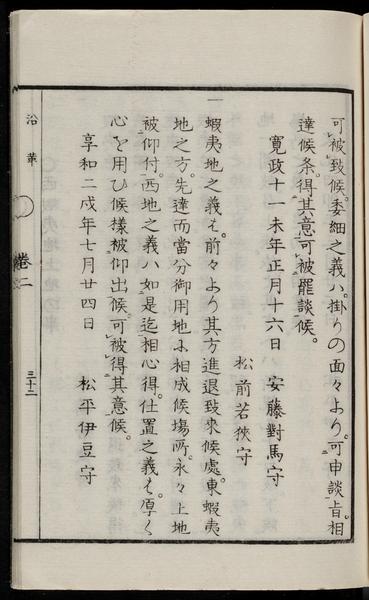 可被致候。委細之義ハ。掛りの面々より。可申談旨。相
達候条。得其意可被罷談候。
寛政十一未年正月十六日 安藤對馬守
松前若狹守
一 蝦夷地之義も。前々より其方進退致來候處。東蝦夷
地之方。先達而當分御用地ニ相成候塲所。永々上地
被仰付。西地之義ハ如是迄相心得。仕置之義も。厚く
心を用ひ候樣被仰出候。可被得其意候。
享和二戌年七月廿四日 松平伊豆守
沿革 卷二 三十二